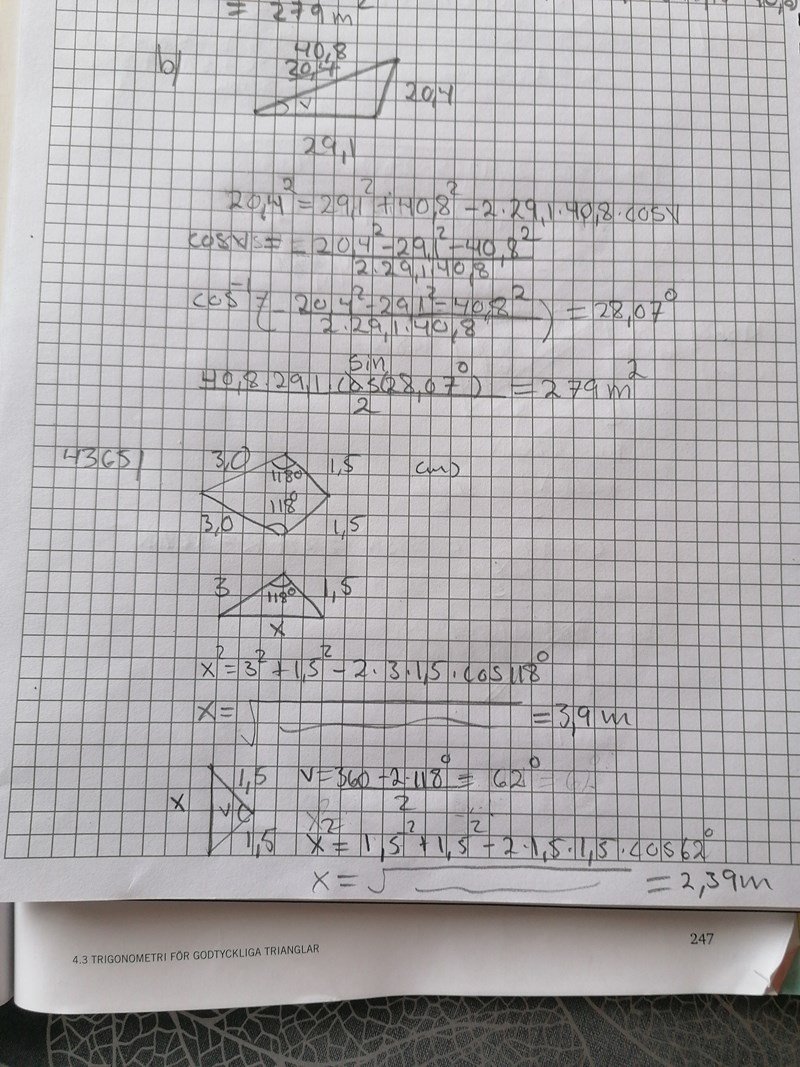 = 279 m²
b)
40,8
20,4
v
29,1
20,4² = 29,1² + 40,8² - 2·29,1·40,8·cosv
cosv = - 20,4² - 29,1² - 40,8²
2·29,1·40,8
cos⁻¹(- 20,4² - 29,1² - 40,8²) = 28,07°
2·29,1·40,8
sin
40,8·29,1·cos(28,07°) = 279 m²
2
4365)
3,0 1,5 (m)
118°
118°
3,0 1,5
3 1,5
118°
x
x² = 3² + 1,5² - 2·3·1,5·cos118°
x = √ = 3,9 m
1,5 v = 360 - 2·118° = 62°
x v 2
1,5 x² = 1,5² + 1,5² - 2·1,5·1,5·cos62°
x = √ = 2,39 m
247
4.3 TRIGONOMETRI FÖR GODTYCKLIGA TRIANGLAR